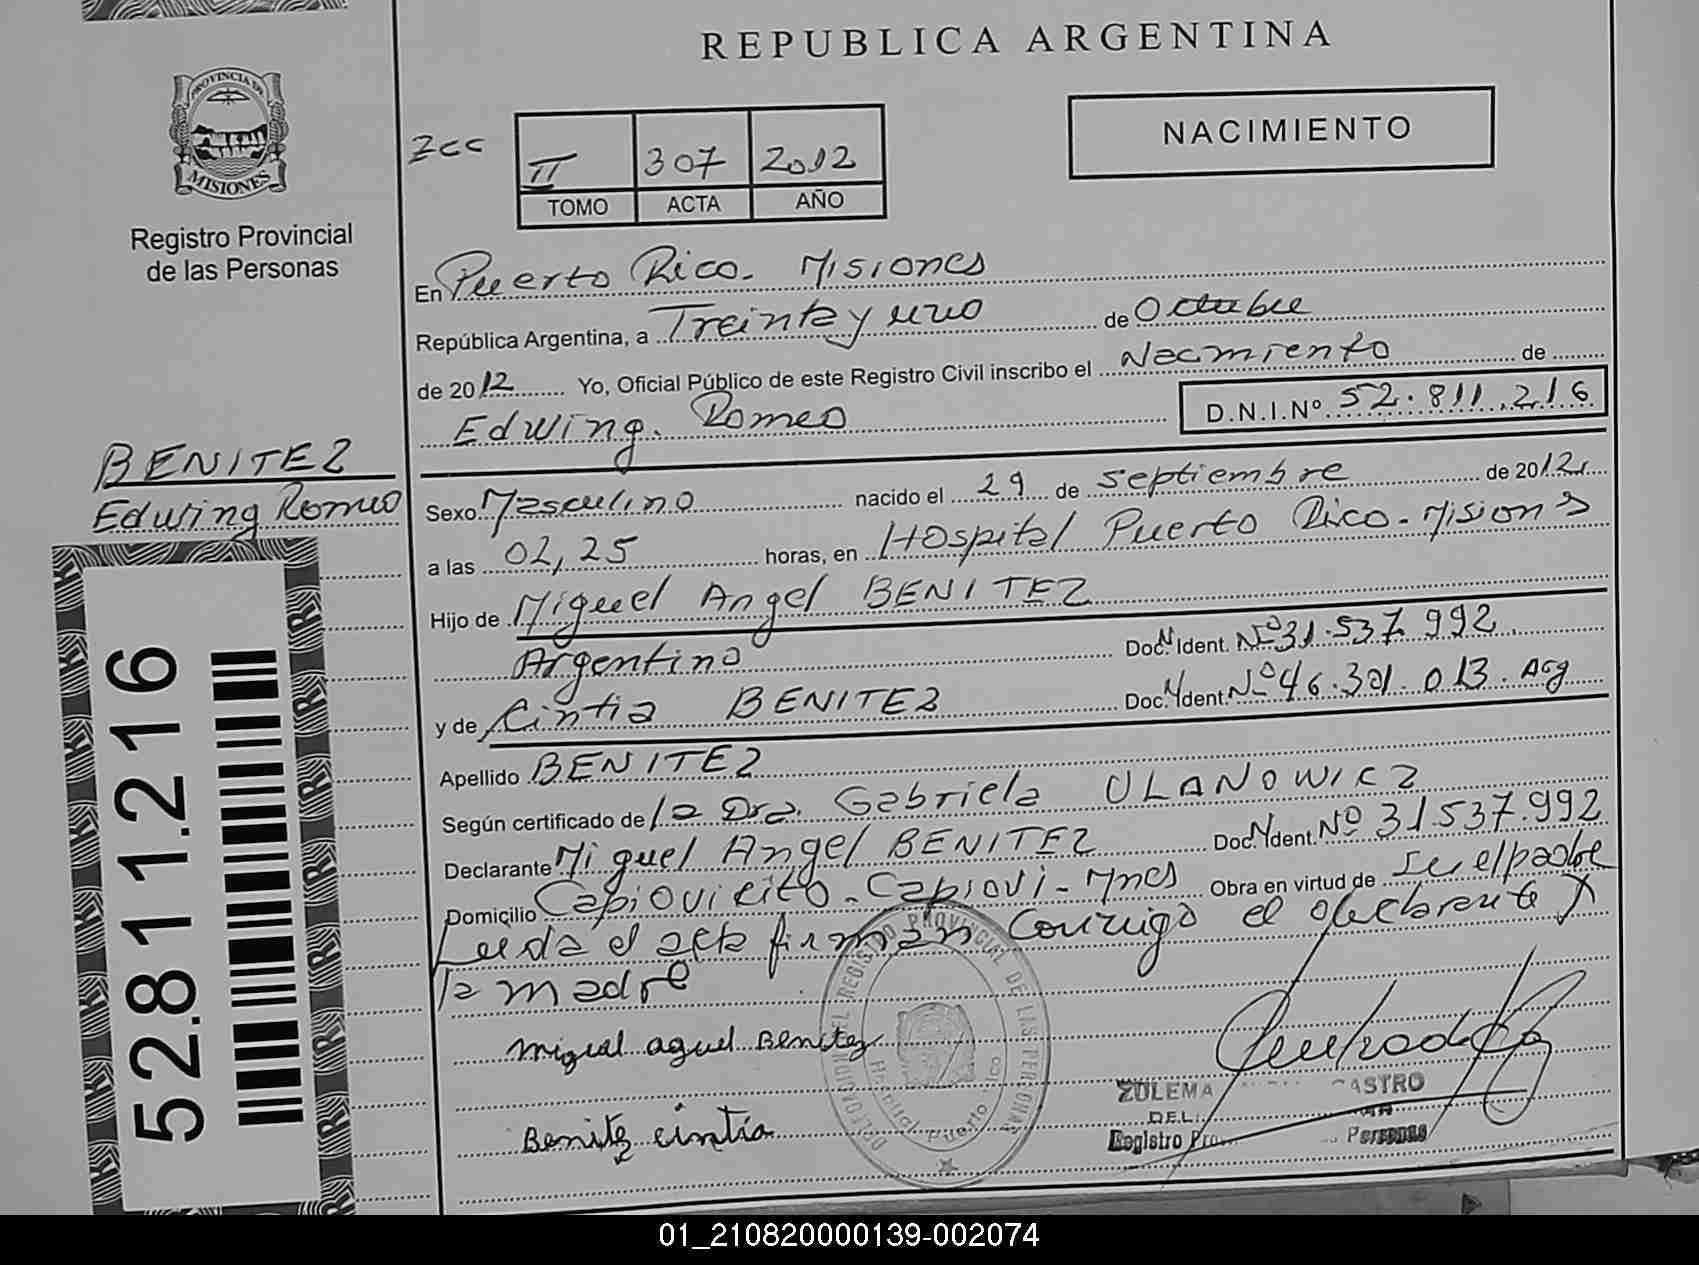 REPUBLICA ARGENTINA
PROVINCIA DE
MISIONES
Registro Provincial
de las Personas
Zcc
II 307 2012
TOMO ACTA AÑO
NACIMIENTO
En Puerto Rico. Misiones
República Argentina, a Treinta y uno de Octubre
de 2012 Yo, Oficial Público de este Registro Civil inscribo el Nacimiento de
Edwing. Romeo D.N.I.Nº 52.811.216
BENITEZ
Edwing Romeo
Sexo Masculino nacido el 29 de septiembre de 2012
a las 02,25 horas, en Hospital Puerto Rico-Misiones
Hijo de Miguel Angel BENITEZ
Argentino Doc. N. Ident. Nº 31.537.992
y de Cintia BENITEZ Doc. N. Ident. Nº 46.301.013. Arg
Apellido BENITEZ
Según certificado de la Dra. Gabriela ULANOWICZ
Declarante Miguel Angel BENITEZ Doc. N. Ident. Nº 31.537.992
Domicilio Capiovicito-Capiovi-Mnes Obra en virtud de Ser el padre
Leida el acta firman conmigo el declarante y
la madre
52.811.216
miguel aguel Benitez
Benitez cintia
DELEGACION EL REGISTRO PROVINCIAL DE LAS PERSONAS
Hospital Puerto Rico
ZULEMA CASTRO
DEL.
Registro Pro Personas
01_210820000139-002074